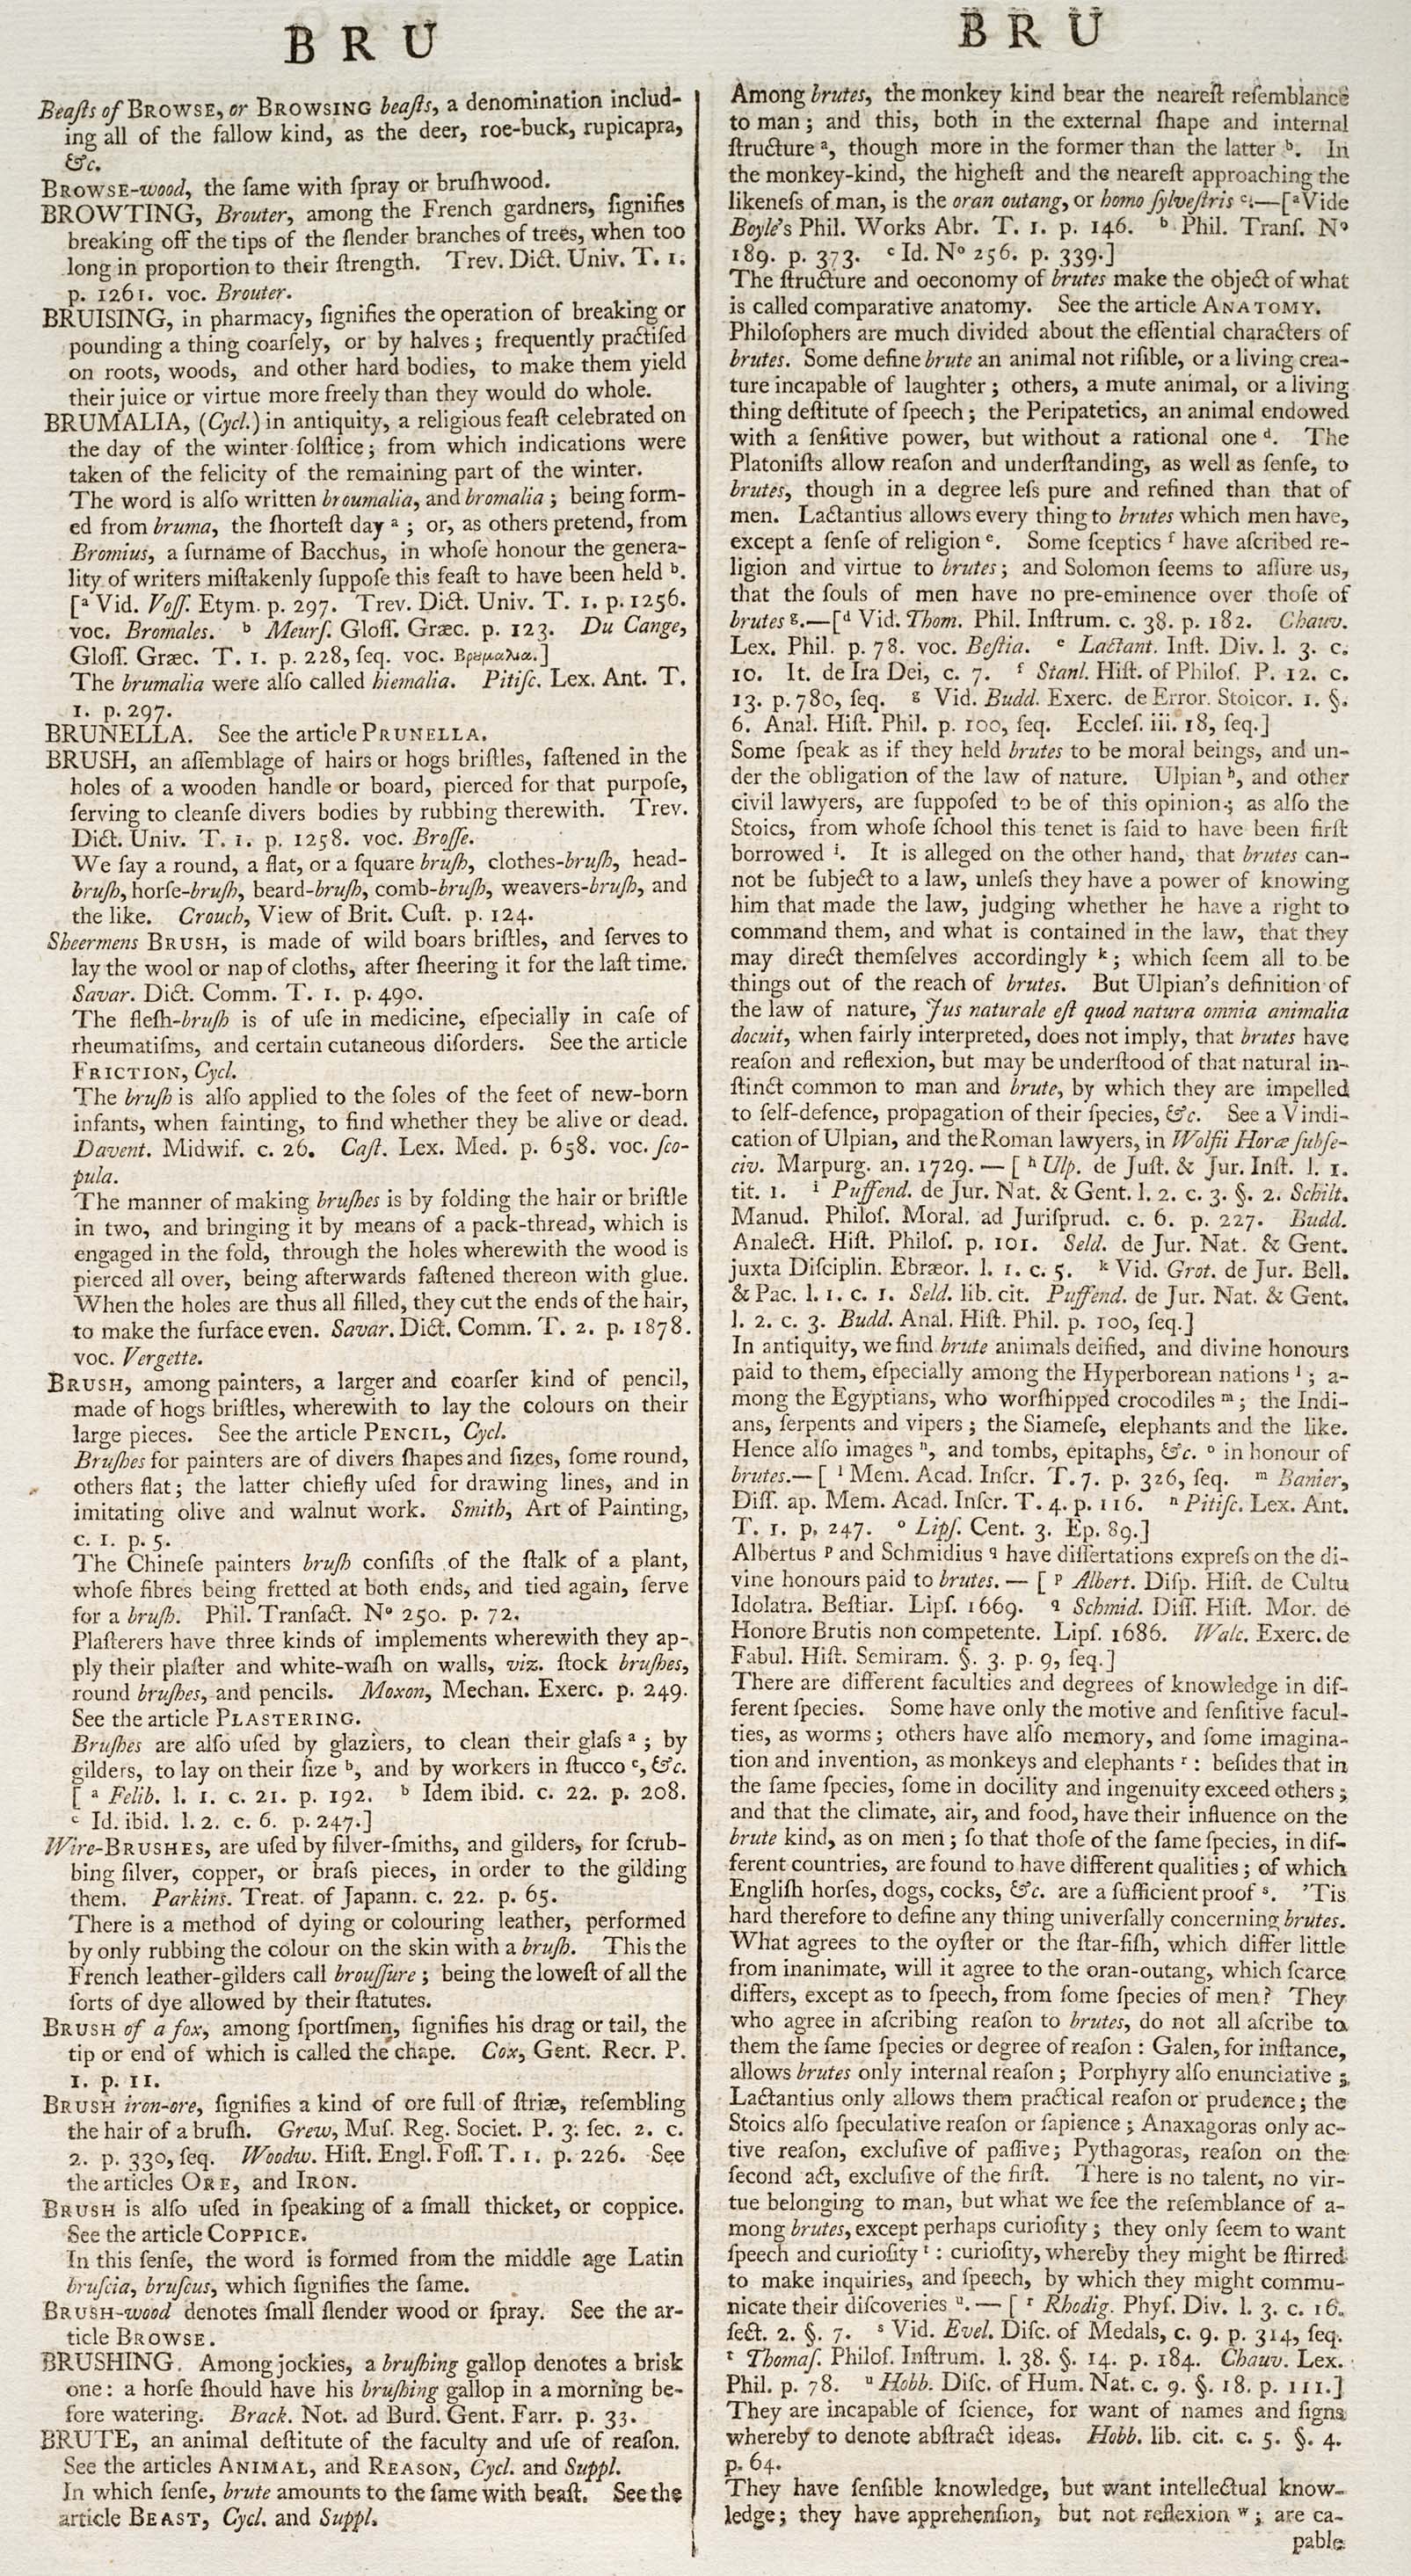 B R U
Beaſts of BROWSE, or BROWSING beaſts, a denomination includ-
ing all of the fallow kind, as the deer, roe-buck, rupicapra,
&c.
BROWSE-wood, the ſame with ſpray or bruſhwood.
BROWTING, Brouter, among the French gardners, ſignifies
breaking off the tips of the ſlender branches of trees, when too
long in proportion to their ſtrength. Trev. Dict. Univ. T. 1.
p. 1261. voc. Brouter.
BRUISING, in pharmacy, ſignifies the operation of breaking or
pounding a thing coarſely, or by halves; frequently practiſed
on roots, woods, and other hard bodies, to make them yield
their juice or virtue more freely than they would do whole.
BRUMALIA, (Cycl.) in antiquity, a religious feaſt celebrated on
the day of the winter ſolſtice; from which indications were
taken of the felicity of the remaining part of the winter.
The word is alſo written broumalia, and bromalia; being form-
ed from bruma, the ſhorteſt day ᵃ; or, as others pretend, from
Bromius, a ſurname of Bacchus, in whoſe honour the genera-
lity of writers miſtakenly ſuppoſe this feaſt to have been held ᵇ.
[ᵃ Vid. Voſſ. Etym. p. 297. Trev. Dict. Univ. T. 1. p. 1256.
voc. Bromales. ᵇ Meurſ. Gloſſ. Græc. p. 123. Du Cange,
Gloſſ. Græc. T. 1. p. 228, ſeq. voc. Βρȣμαλια.]
The brumalia were alſo called hiemalia. Pitiſc. Lex. Ant. T.
1. p. 297.
BRUNELLA. See the article PRUNELLA.
BRUSH, an aſſemblage of hairs or hogs briſtles, faſtened in the
holes of a wooden handle or board, pierced for that purpoſe,
ſerving to cleanſe divers bodies by rubbing therewith. Trev.
Dict. Univ. T. 1. p. 1258. voc. Broſſe.
We ſay a round, a flat, or a ſquare bruſh, clothes-bruſh, head-
bruſh, horſe-bruſh, beard-bruſh, comb-bruſh, weavers-bruſh, and
the like. Crouch, View of Brit. Cuſt. p. 124.
Sheermens BRUSH, is made of wild boars briſtles, and ſerves to
lay the wool or nap of cloths, after ſheering it for the laſt time.
Savar. Dict. Comm. T. 1. p. 490.
The fleſh-bruſh is of uſe in medicine, eſpecially in caſe of
rheumatiſms, and certain cutaneous diſorders. See the article
FRICTION, Cycl.
The bruſh is alſo applied to the ſoles of the feet of new-born
infants, when fainting, to find whether they be alive or dead.
Davent. Midwif. c. 26. Caſt. Lex. Med. p. 658. voc. ſco-
pula.
The manner of making bruſhes is by folding the hair or briſtle
in two, and bringing it by means of a pack-thread, which is
engaged in the fold, through the holes wherewith the wood is
pierced all over, being afterwards faſtened thereon with glue.
When the holes are thus all filled, they cut the ends of the hair,
to make the ſurface even. Savar. Dict. Comm. T. 2. p. 1878.
voc. Vergette.
BRUSH, among painters, a larger and coarſer kind of pencil,
made of hogs briſtles, wherewith to lay the colours on their
large pieces. See the article PENCIL, Cycl.
Bruſhes for painters are of divers ſhapes and ſizes, ſome round,
others flat; the latter chiefly uſed for drawing lines, and in
imitating olive and walnut work. Smith, Art of Painting,
c. 1. p. 5.
The Chineſe painters bruſh conſiſts of the ſtalk of a plant,
whoſe fibres being fretted at both ends, and tied again, ſerve
for a bruſh. Phil. Tranſact. Nº 250. p. 72.
Plaſterers have three kinds of implements wherewith they ap-
ply their plaſter and white-waſh on walls, viz. ſtock bruſhes,
round bruſhes, and pencils. Moxon, Mechan. Exerc. p. 249.
See the article PLASTERING.
Bruſhes are alſo uſed by glaziers, to clean their glaſs ᵃ; by
gilders, to lay on their ſize ᵇ, and by workers in ſtucco ᶜ, &c.
[ ᵃ Felib. l. 1. c. 21. p. 192. ᵇ Idem ibid. c. 22. p. 208.
ᶜ Id. ibid. l. 2. c. 6. p. 247.]
Wire-BRUSHES, are uſed by ſilver-ſmiths, and gilders, for ſcrub-
bing ſilver, copper, or braſs pieces, in order to the gilding
them. Parkins. Treat. of Japann. c. 22. p. 65.
There is a method of dying or colouring leather, performed
by only rubbing the colour on the skin with a bruſh. This the
French leather-gilders call brouſſure; being the loweſt of all the
ſorts of dye allowed by their ſtatutes.
BRUSH of a fox, among ſportſmen, ſignifies his drag or tail, the
tip or end of which is called the chape. Cox, Gent. Recr. P.
1. p. 11.
BRUSH iron-ore, ſignifies a kind of ore full of ſtriæ, reſembling
the hair of a bruſh. Grew, Muſ. Reg. Societ. P. 3. ſec. 2. c.
2. p. 330, ſeq. Woodw. Hiſt. Engl. Foſſ. T. 1. p. 226. See
the articles ORE, and IRON.
BRUSH is alſo uſed in ſpeaking of a ſmall thicket, or coppice.
See the article COPPICE.
In this ſenſe, the word is formed from the middle age Latin
bruſcia, bruſcus, which ſignifies the ſame.
BRUSH-wood denotes ſmall ſlender wood or ſpray. See the ar-
ticle BROWSE.
BRUSHING. Among jockies, a bruſhing gallop denotes a brisk
one: a horſe ſhould have his bruſhing gallop in a morning be-
fore watering. Brack. Not. ad Burd. Gent. Farr. p. 33.
BRUTE, an animal deſtitute of the faculty and uſe of reaſon.
See the articles ANIMAL, and REASON, Cycl. and Suppl.
In which ſenſe, brute amounts to the ſame with beaſt. See the
article BEAST, Cycl. and Suppl.
B R U
Among brutes, the monkey kind bear the neareſt reſemblance
to man; and this, both in the external ſhape and internal
ſtructure ᵃ, though more in the former than the latter ᵇ. In
the monkey-kind, the higheſt and the neareſt approaching the
likeneſs of man, is the oran outang, or homo ſylveſtris ᶜ.—[ᵃ Vide
Boyle's Phil. Works Abr. T. 1. p. 146. ᵇ Phil. Tranſ. Nº
189. p. 373. ᶜ Id. Nº 256. p. 339.]
The ſtructure and oeconomy of brutes make the object of what
is called comparative anatomy. See the article ANATOMY.
Philoſophers are much divided about the eſſential characters of
brutes. Some define brute an animal not riſible, or a living crea-
ture incapable of laughter; others, a mute animal, or a living
thing deſtitute of ſpeech; the Peripatetics, an animal endowed
with a ſenſitive power, but without a rational one ᵈ. The
Platoniſts allow reaſon and underſtanding, as well as ſenſe, to
brutes, though in a degree leſs pure and refined than that of
men. Lactantius allows every thing to brutes which men have,
except a ſenſe of religion ᵉ. Some ſceptics ᶠ have aſcribed re-
ligion and virtue to brutes; and Solomon ſeems to aſſure us,
that the ſouls of men have no pre-eminence over thoſe of
brutes ᵍ.—[ᵈ Vid. Thom. Phil. Inſtrum. c. 38. p. 182. Chauv.
Lex. Phil. p. 78. voc. Beſtia. ᵉ Lactant. Inſt. Div. l. 3. c.
10. It. de Ira Dei, c. 7. ᶠ Stanl. Hiſt. of Philoſ. P. 12. c.
13. p. 780, ſeq. ᵍ Vid. Budd. Exerc. de Error. Stoicor. 1. §.
6. Anal. Hiſt. Phil. p. 100, ſeq. Eccleſ. iii. 18, ſeq.]
Some ſpeak as if they held brutes to be moral beings, and un-
der the obligation of the law of nature. Ulpian ʰ, and other
civil lawyers, are ſuppoſed to be of this opinion; as alſo the
Stoics, from whoſe ſchool this tenet is ſaid to have been firſt
borrowed ⁱ. It is alleged on the other hand, that brutes can-
not be ſubject to a law, unleſs they have a power of knowing
him that made the law, judging whether he have a right to
command them, and what is contained in the law, that they
may direct themſelves accordingly ᵏ; which ſeem all to be
things out of the reach of brutes. But Ulpian's definition of
the law of nature, Jus naturale eſt quod natura omnia animalia
docuit, when fairly interpreted, does not imply, that brutes have
reaſon and reflexion, but may be underſtood of that natural in-
ſtinct common to man and brute, by which they are impelled
to ſelf-defence, propagation of their ſpecies, &c. See a Vindi-
cation of Ulpian, and the Roman lawyers, in Wolfii Horæ ſubſe-
civ. Marpurg. an. 1729. — [ ʰ Ulp. de Juſt. & Jur. Inſt. l. 1.
tit. 1. ⁱ Puffend. de Jur. Nat. & Gent. l. 2. c. 3. §. 2. Schilt.
Manud. Philoſ. Moral. ad Juriſprud. c. 6. p. 227. Budd.
Analect. Hiſt. Philoſ. p. 101. Seld. de Jur. Nat. & Gent.
juxta Diſciplin. Ebræor. l. 1. c. 5. ᵏ Vid. Grot. de Jur. Bell.
& Pac. l. 1. c. 1. Seld. lib. cit. Puffend. de Jur. Nat. & Gent.
l. 2. c. 3. Budd. Anal. Hiſt. Phil. p. 100, ſeq.]
In antiquity, we find brute animals deified, and divine honours
paid to them, eſpecially among the Hyperborean nations ˡ; a-
mong the Egyptians, who worſhipped crocodiles ᵐ; the Indi-
ans, ſerpents and vipers; the Siameſe, elephants and the like.
Hence alſo images ⁿ, and tombs, epitaphs, &c. ᵒ in honour of
brutes.— [ ˡ Mem. Acad. Inſcr. T. 7. p. 326, ſeq. ᵐ Banier,
Diſſ. ap. Mem. Acad. Inſcr. T. 4. p. 116. ⁿ Pitiſc. Lex. Ant.
T. 1. p. 247. ᵒ Lipſ. Cent. 3. Ep. 89.]
Albertus ᵖ and Schmidius q have diſſertations expreſs on the di-
vine honours paid to brutes. — [ ᵖ Albert. Diſp. Hiſt. de Cultu
Idolatra. Beſtiar. Lipſ. 1669. q Schmid. Diſſ. Hiſt. Mor. de
Honore Brutis non competente. Lipſ. 1686. Walc. Exerc. de
Fabul. Hiſt. Semiram. §. 3. p. 9, ſeq.]
There are different faculties and degrees of knowledge in dif-
ferent ſpecies. Some have only the motive and ſenſitive facul-
ties, as worms; others have alſo memory, and ſome imagina-
tion and invention, as monkeys and elephants ʳ: beſides that in
the ſame ſpecies, ſome in docility and ingenuity exceed others;
and that the climate, air, and food, have their influence on the
brute kind, as on men; ſo that thoſe of the ſame ſpecies, in dif-
ferent countries, are found to have different qualities; of which
Engliſh horſes, dogs, cocks, &c. are a ſufficient proof ˢ. 'Tis
hard therefore to define any thing univerſally concerning brutes.
What agrees to the oyſter or the ſtar-fiſh, which differ little
from inanimate, will it agree to the oran-outang, which ſcarce
differs, except as to ſpeech, from ſome ſpecies of men? They
who agree in aſcribing reaſon to brutes, do not all aſcribe to
them the ſame ſpecies or degree of reaſon: Galen, for inſtance,
allows brutes only internal reaſon; Porphyry alſo enunciative;
Lactantius only allows them practical reaſon or prudence; the
Stoics alſo ſpeculative reaſon or ſapience; Anaxagoras only ac-
tive reaſon, excluſive of paſſive; Pythagoras, reaſon on the
ſecond act, excluſive of the firſt. There is no talent, no vir-
tue belonging to man, but what we ſee the reſemblance of a-
mong brutes, except perhaps curioſity; they only ſeem to want
ſpeech and curioſity ᵗ: curioſity, whereby they might be ſtirred
to make inquiries, and ſpeech, by which they might commu-
nicate their diſcoveries ᵘ. — [ ʳ Rhodig. Phyſ. Div. l. 3. c. 16.
ſect. 2. §. 7. ˢ Vid. Evel. Diſc. of Medals, c. 9. p. 314, ſeq.
ᵗ Thomaſ. Philoſ. Inſtrum. l. 38. §. 14. p. 184. Chauv. Lex.
Phil. p. 78. ᵘ Hobb. Diſc. of Hum. Nat. c. 9. §. 18. p. 111.]
They are incapable of ſcience, for want of names and ſigns
whereby to denote abſtract ideas. Hobb. lib. cit. c. 5. §. 4.
p. 64.
They have ſenſible knowledge, but want intellectual know-
ledge; they have apprehenſion, but not reflexion ʷ; are ca-
pable